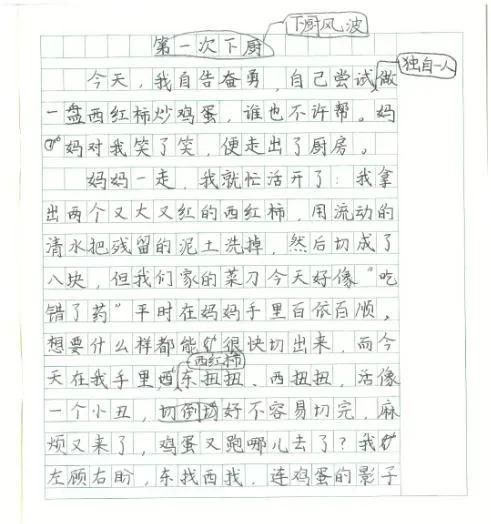 下厨风波
第一次下厨
独自一人
今天，我自告奋勇，自己尝试做
一盘西红柿炒鸡蛋，谁也不许帮。妈
妈对我笑了笑，便走出了厨房。
妈妈一走，我就忙活开了：我拿
出两个又大又红的西红柿，用流动的
清水把残留的泥土洗掉，然后切成了
八块，但我们家的菜刀今天好像“吃
错了药”平时在妈妈手里百依百顺，
想要什么样都能很快切出来，而今
西红柿
天在我手里东扭扭、西扭扭，活像
一个小丑，切倒好不容易切完，麻
烦又来了，鸡蛋又跑哪儿去了？我
左顾右盼，东找西找，连鸡蛋的影子